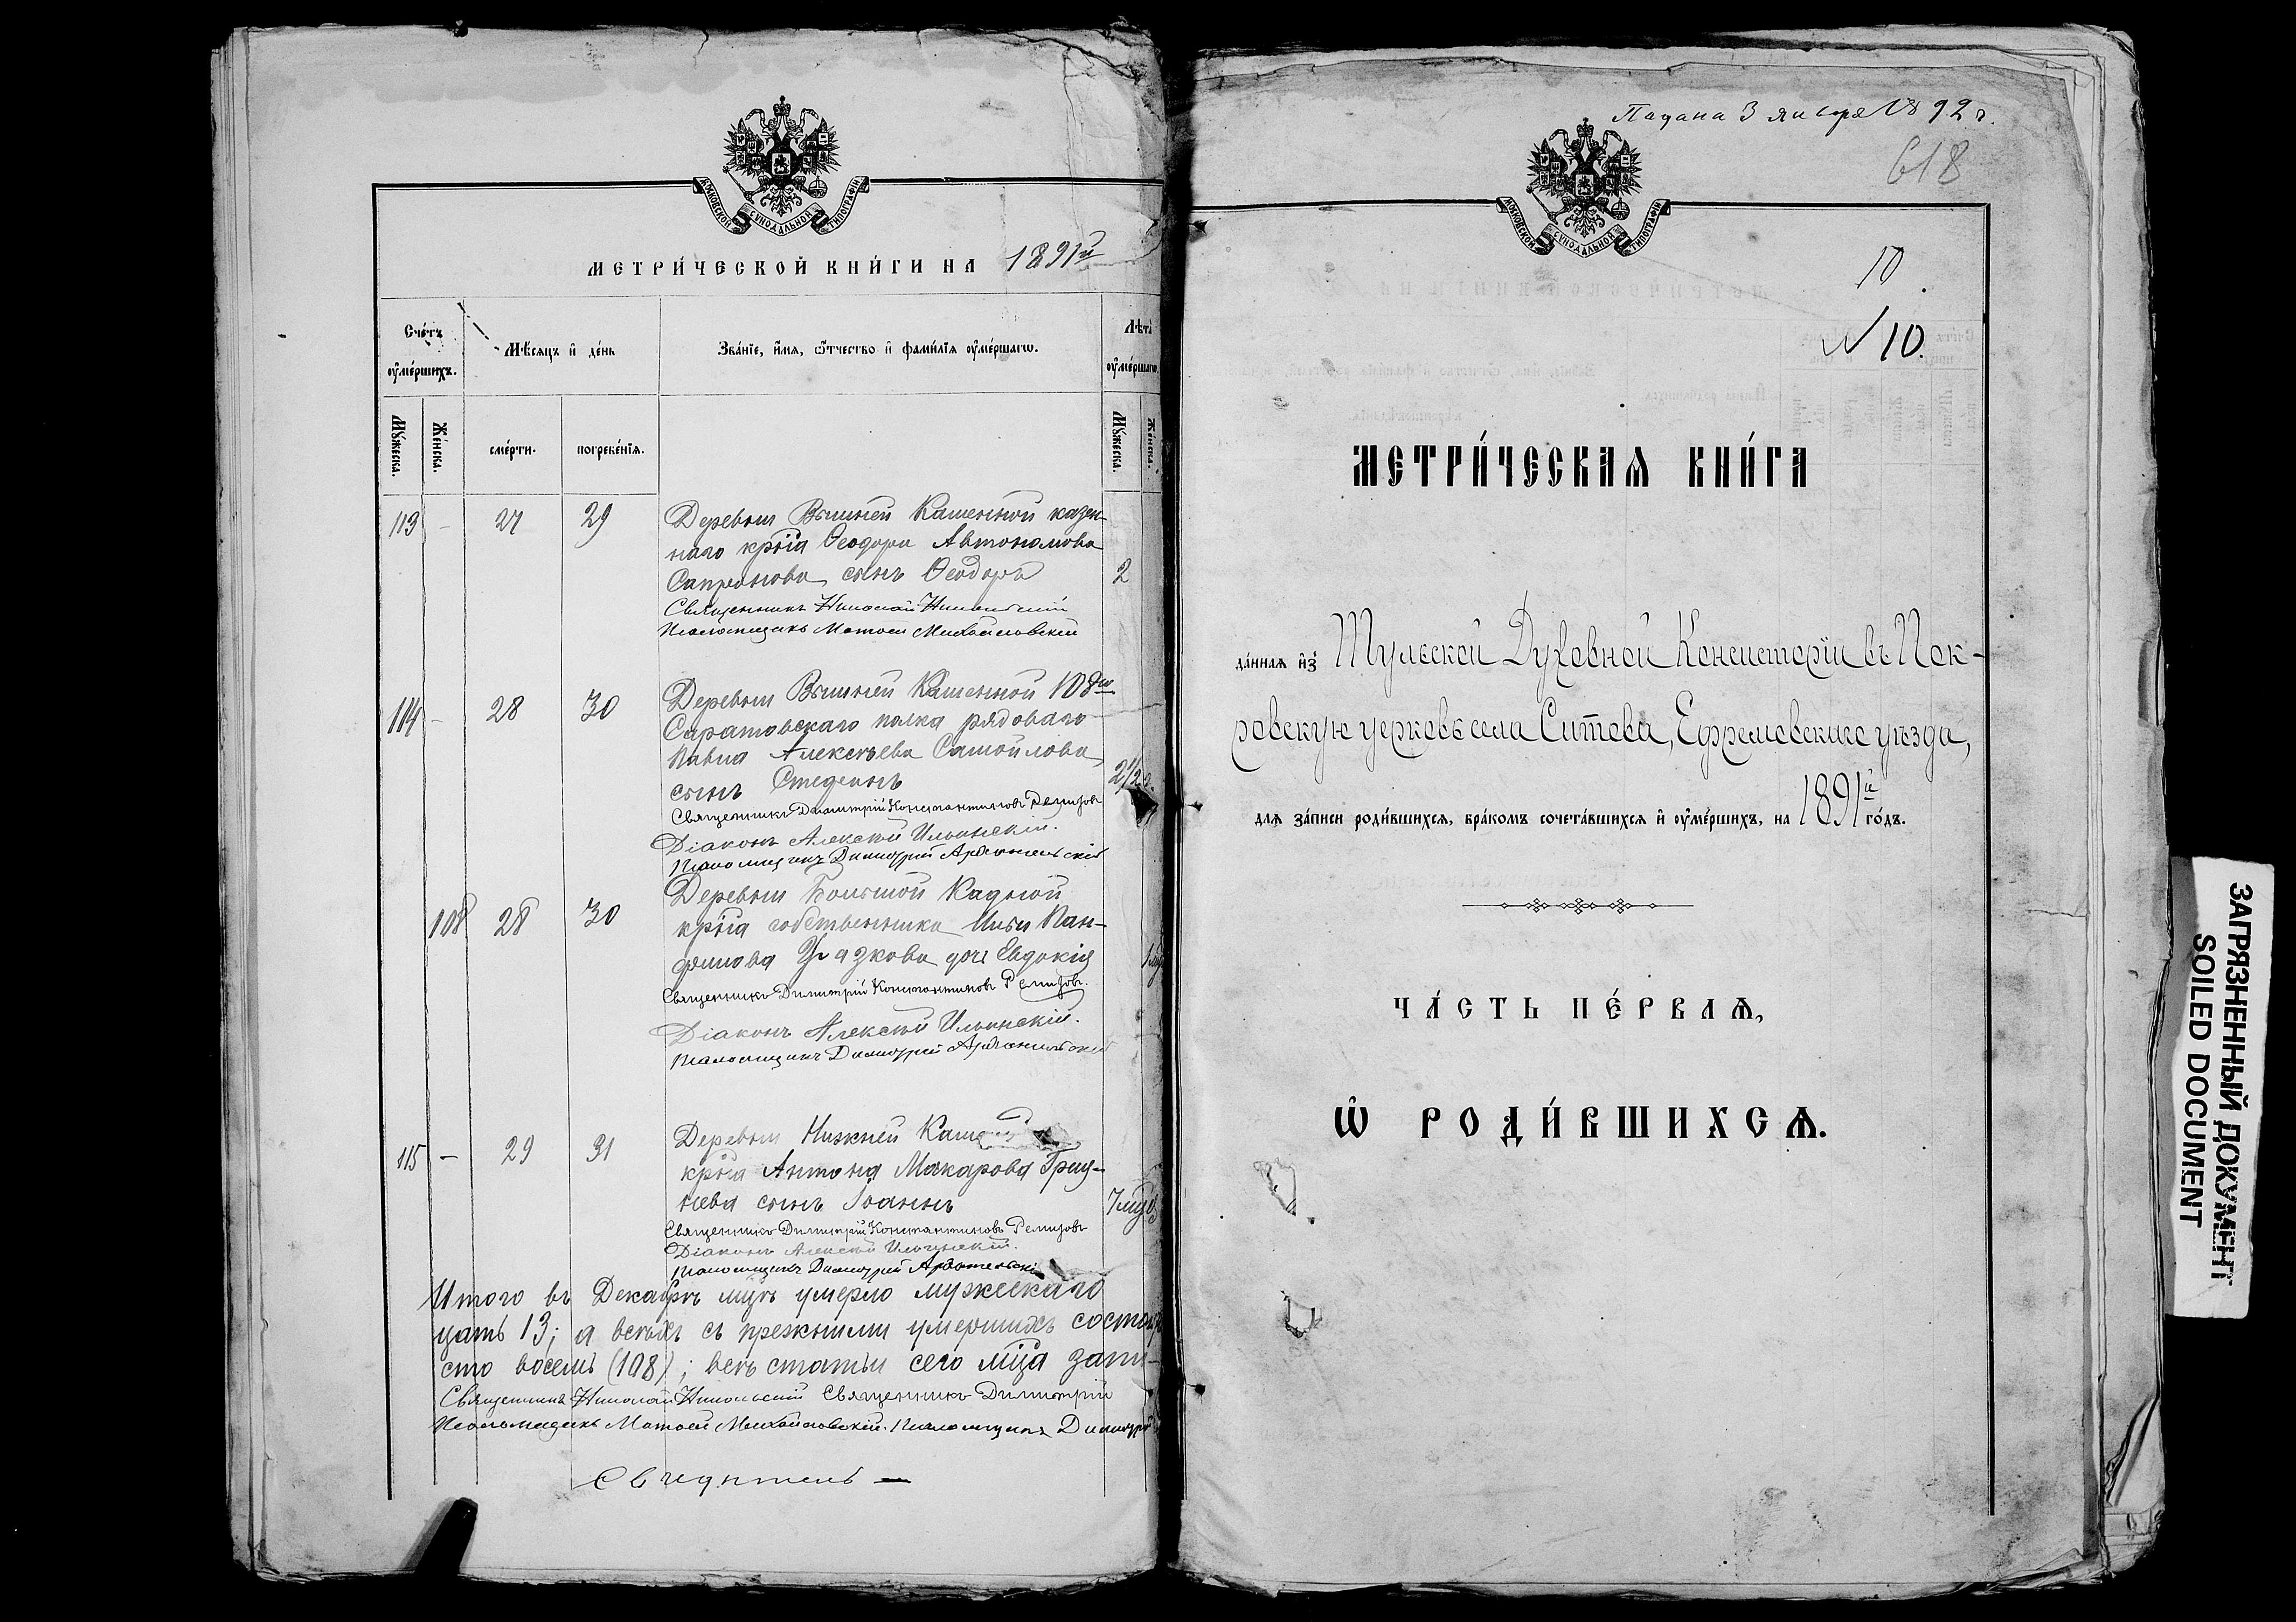 МОСКОВСКОЙ СѴНОДАЛЬНОЙ ТИПОГРАФІИ
МЕТРИ́ЧЕСКОЙ КНИ́ГИ НА 1891й
Сче́тъ ᲂу҆ме́ршихъ.
Мѣ́сяцъ и҆ де́нь
Зва́нїе, и҆́мя, ѻ҆́тчество и҆ фами́лїя ᲂу҆ме́ршагѡ.
Лѣта̀ ᲂу҆ме́ршагѡ.
Мꙋ́жеска.
Же́нска.
сме́рти.
погребе́нїя.
Мꙋ́жеска.
Же́нска.
113 - 27 29 Деревни Вышней Каменной казен-
наго крⷭ҇та Ѳеодора Автономова
Сапронова сынъ Ѳеодоръ 2
Священникъ Николай Никольскій
Псаломщикъ Матѳей Михайловскій
114 - 28 30 Деревни Вышней Каменной 108го
Саратовскаго полка рядоваго
Павла Алексѣева Самойлова
сынъ Стефанъ 2 1/2 г.
Священникъ Димитрій Константиновъ Ремизовъ
Діаконъ Алексѣй Ильинскій.
Псаломщикъ Димитрій Архангельскій
108 28 30 Деревни Большой Кадной
кр҃на собственника Ильи Пан-
филова дочь Евдокія
Священникъ Димитрій Константиновъ Ремизовъ.
Діаконъ Алексѣй Ильинскій.
Псаломщикъ Димитрій Архангельскій
115 - 29 31 Деревни Нижней
кр҃на Антона Макарова Гриц-
нева сынъ Іоаннъ 7
Священникъ Димитрій Константиновъ Ремизовъ
Діаконъ Алексѣй Ильинскій.
Псаломщикъ Димитрій Архангельскій
Итого въ Декабрѣ мцѣ умерло мужескаго
цать 13; а всѣхъ съ прежними умершихъ состои
сто восемь (108); всѣ статьи сего мца запи-
Священникъ Николай Никольскій Священникъ Димитрій
Псаломщикъ Матѳей Михайловскій. Псаломщикъ Димитрій
Свидѣтель —
Подана 3 января 1892 г.
618
МОСКОВСКОЙ СѴНОДАЛЬНОЙ ТИПОГРАФІИ
10
N 10.
МЕТРИ́ЧЕСКАѦ КНИ́ГА
да́нная и҆з̾ Тульской Духовной Консисторіи въ Пок-
ровскую церковь села Ситова, Ефремовскаго уѣзда,
для за́писи роди́вшихся, бра́комъ сочета́вшихся и҆ ᲂу҆ме́ршихъ, на 1891й го́дъ.
ЧА́СТЬ ПЕ́РВАѦ,
Ѽ РОДИ́ВШИХСѦ.
ЗАГРЯЗНЕННЫЙ ДОКУМЕНТ
SOILED DOCUMENT